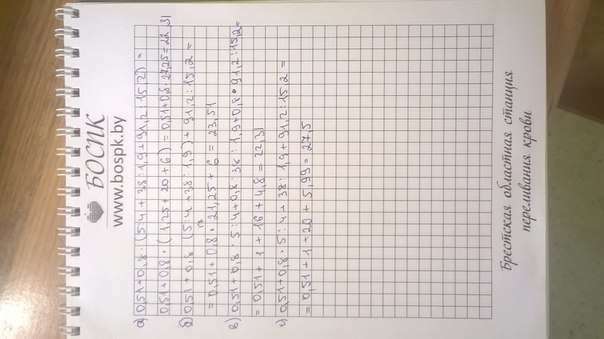 БОСПК
www.bospk.by
а) 0,51+0,8·(5:4+38:1,9+91,2:15,2)=
0,51+0,8·(1,25+20+6)=0,51+0,8·27,25=22,31
б) 0,51+0,8·(5:4+38:1,9)+91,2:15,2=
=0,51+0,8·21,25+6=23,51
в) 0,51+0,8·5:4+0,8·38:1,9+0,8·91,2:15,2=
=0,51+1+16+4,8=22,31
г) 0,51+0,8·5:4+38:1,9+91,2:15,2=
=0,51+1+20+5,99=27,5
Брестская областная станция
переливания крови